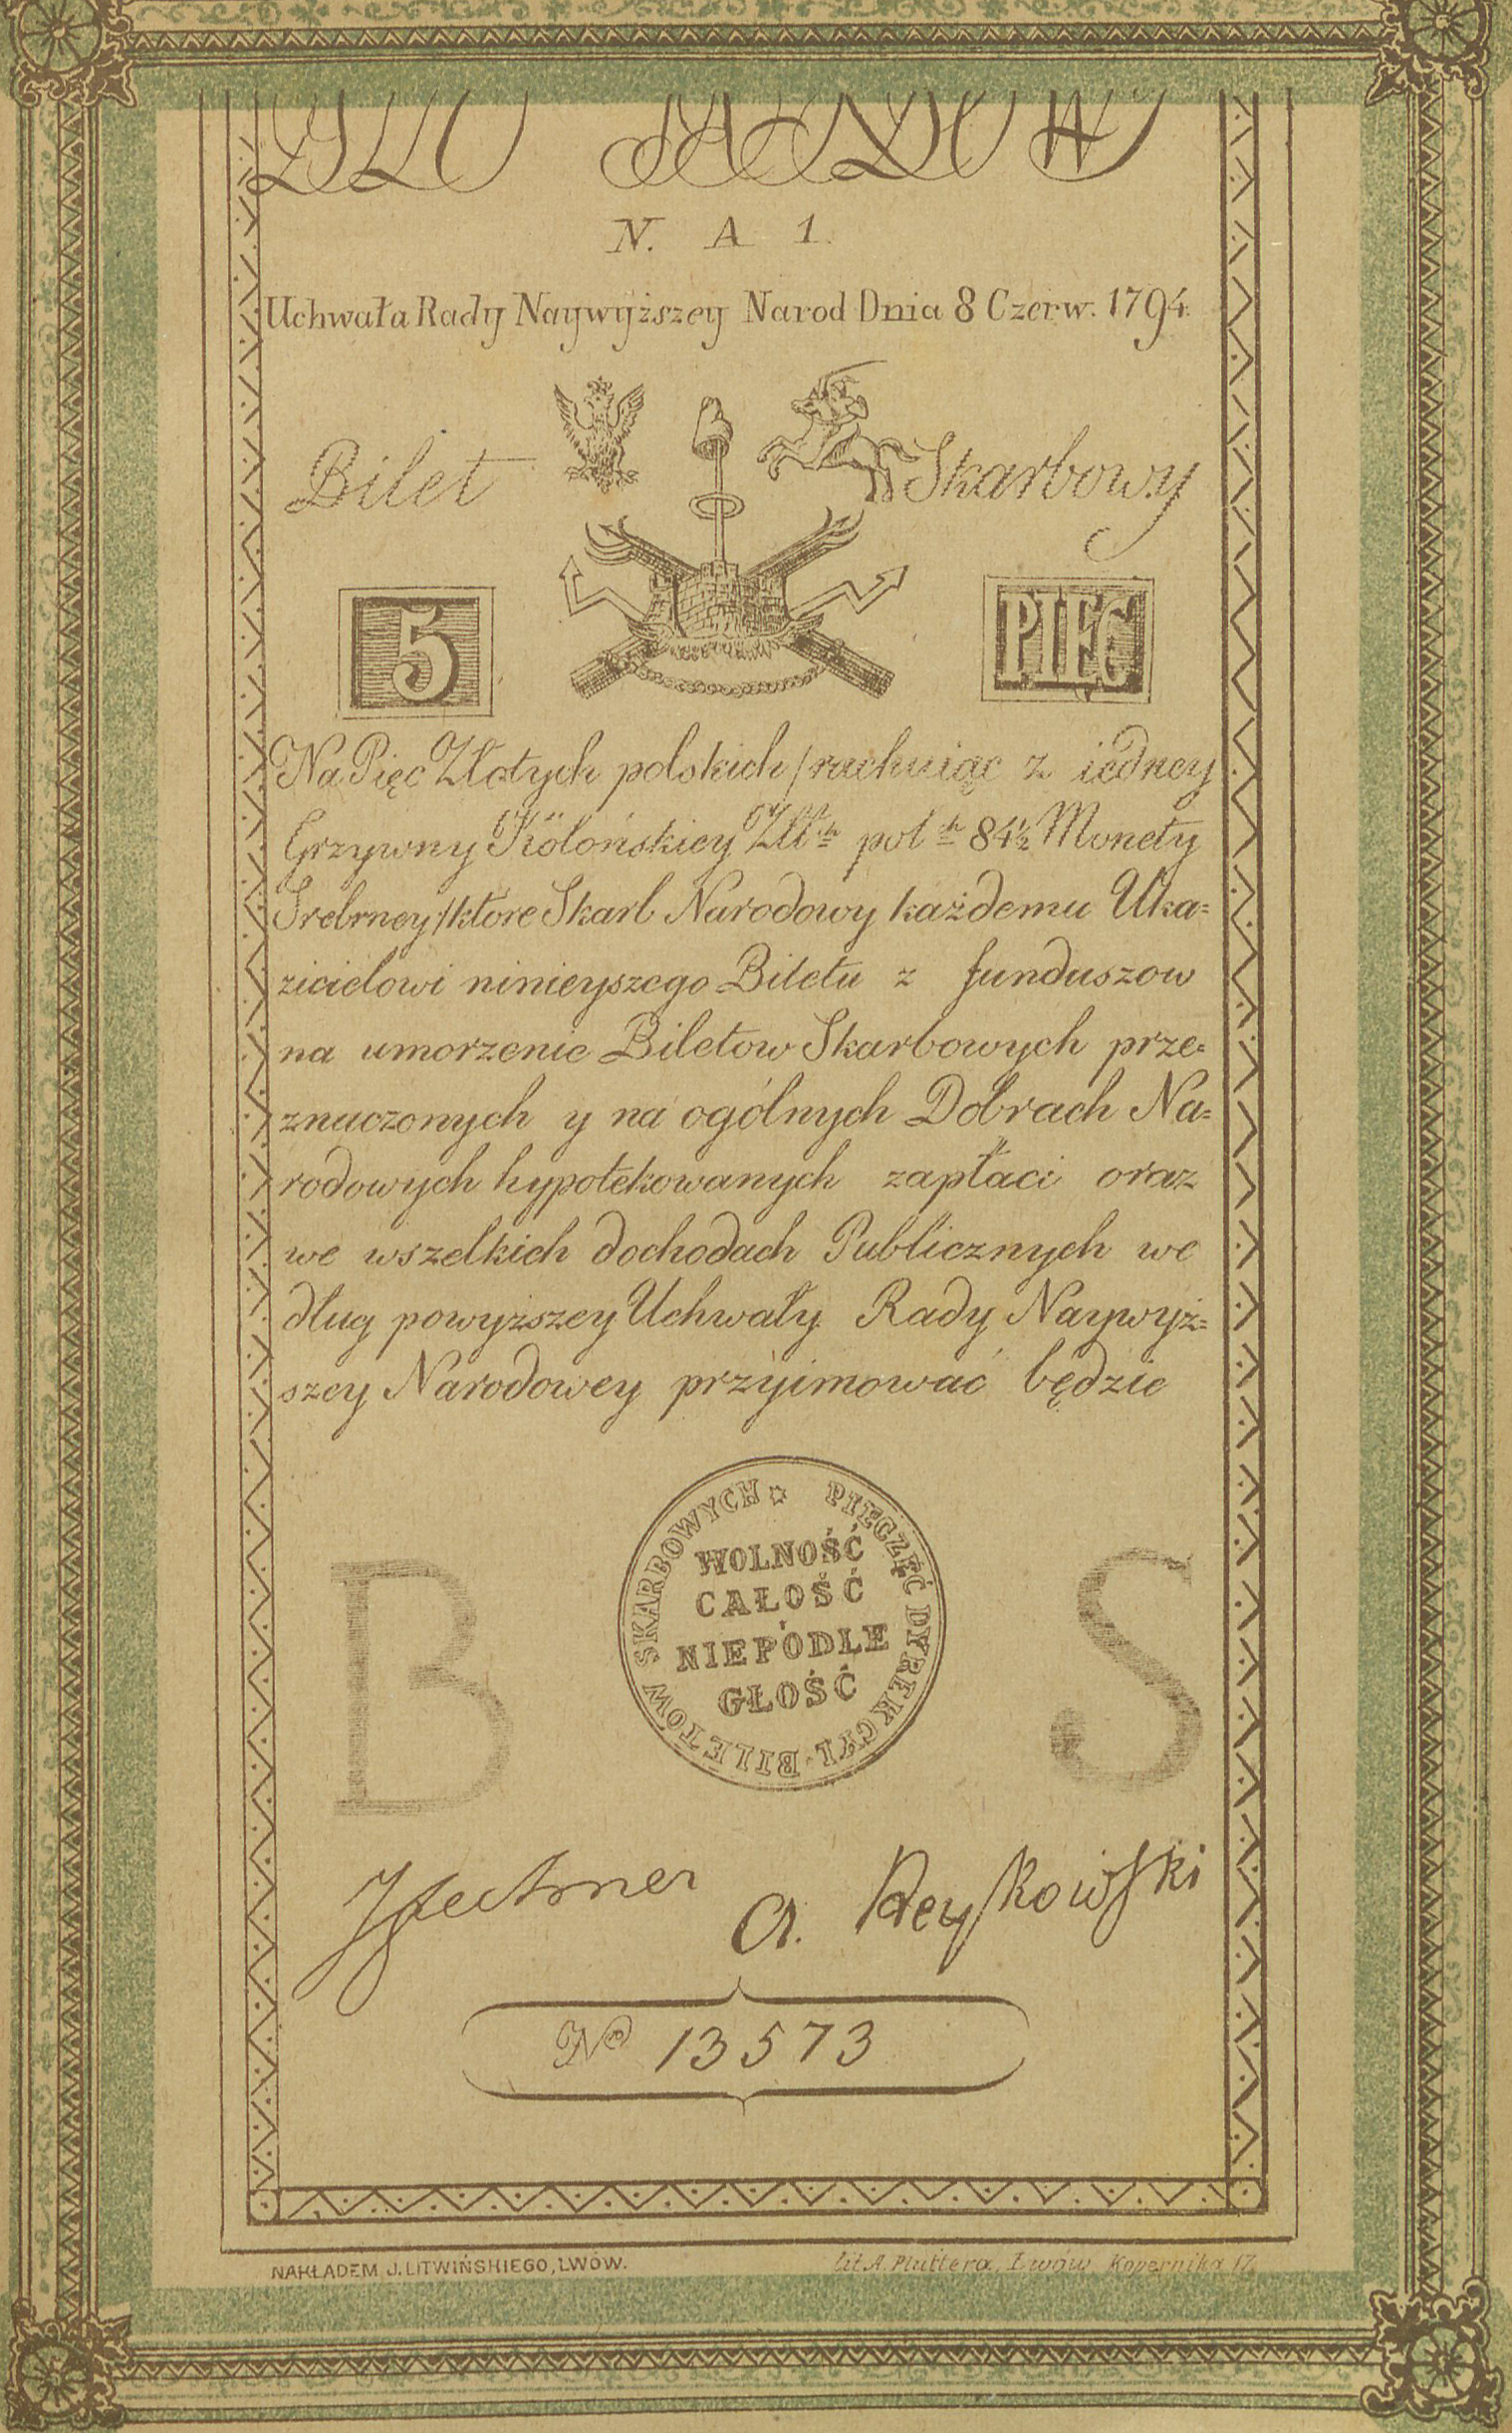 N. A 1.
Uchwała Rady Naywyższey Narod Dnia 8 Czerw. 1794.
Bilet Skarbowy
5 PIĘĆ
Na Pięc Złotych polskich /rachuiąc z iedney
Grzywny Kölońskiey Złt:ch pol:ch 84½ Monety
Srebrney/ ktore Skarb Narodowy każdemu Uka=
zicielowi ninieyszego Biletu z funduszow
na umorzenie Biletow Skarbowych prze=
znaczonych y na ogólnych Dobrach Na=
rodowych hypotekowanych zapłaci oraz
we wszelkich dochodach Publicznych we
dług powyższey Uchwały Rady Naywyż=
szey Narodowey przyimować będzie
PIECZĘĆ DYREKCYI · BILETOW SKARBOWYCH
WOLNOŚĆ
CAŁOŚĆ
NIEPODLE
GŁOŚĆ
B S
A. Reyskowski
No 13573
NAKŁADEM J. LITWIŃSKIEGO, LWÓW.
Lit. A. Pluttera, Lwów Kopernika 17.